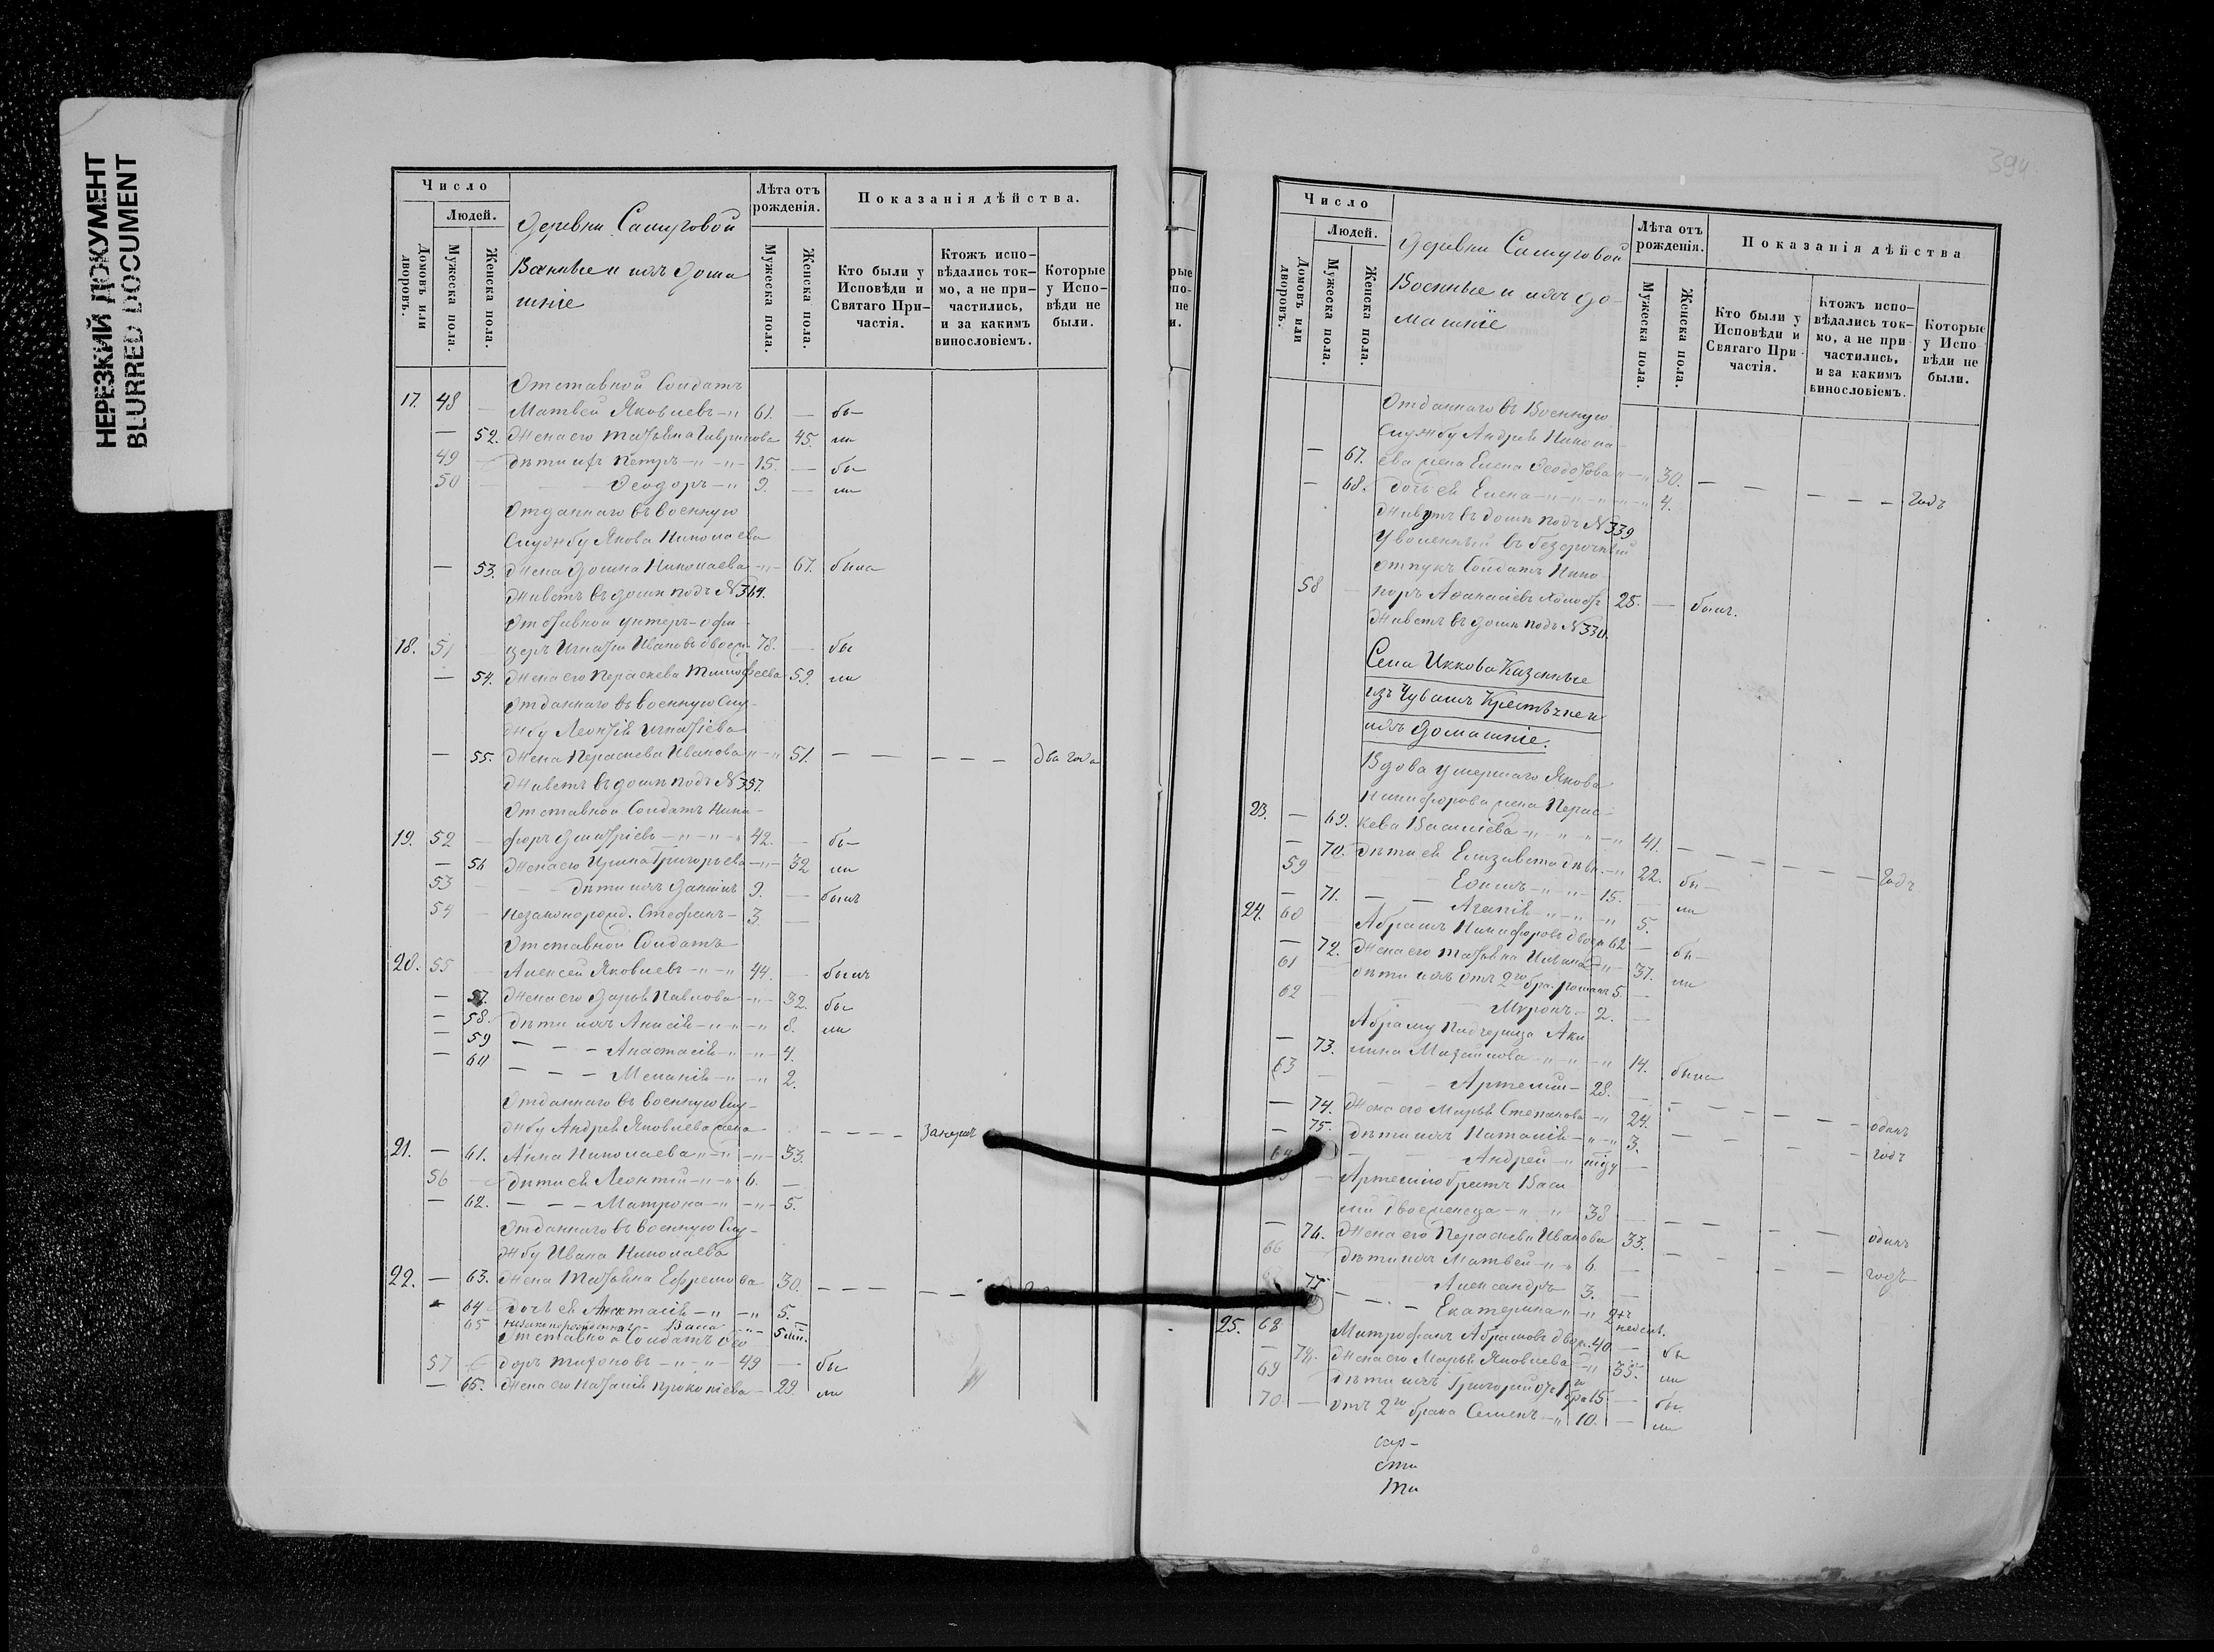 НЕРЕЗКИЙ ДОКУМЕНТ
BLURRED DOCUMENT
Число
Людей.
Домовъ или дворовъ.
Мужеска пола.
Женска пола.
Деревни
Военные и ихъ дома
шніе
Лѣта отъ рожденія.
Мужеска пола.
Женска пола.
Показанія дѣйства.
Кто были у Исповѣди и Святаго При-частія.
Ктожъ испо-вѣдались ток-мо, а не при-частились, и за какимъ винословіемъ.
Которые у Испо-вѣди не были.
Отставной Солдатъ
17. 48 — Матвей Яковлевъ 61. — бы-
— 52. Жена его Татьяна Гаврилова 45. ли
49 — дѣти ихъ Петръ 15. — бы
50 — — Ѳеодоръ 9. — ли
Отданнаго въ военную
Службу Якова Николаева
— 53. Жена Домна Николаева 67. была
Живетъ въ домѣ подъ N 364.
Отставной унтеръ-офи-
18. 51 — церъ Игнатій Ивановъ двоеж. 78. — бы
— 54. Жена его Параскева Тимофеева 59. ли
Отданнаго въ военную Слу-
жбу Леонтія Игнатіева
— 55. Жена Параскева Иванова 51. — — — — — два года
Живетъ въ домѣ подъ N 357.
Отставной Солдатъ Ники-
19. 52 — форъ Дмитріевъ 42. — бы-
— 56 Жена его Ирина Григорьева 32 ли
53 — дѣти ихъ Даніилъ 9. — былъ
54 — Незаконорожд. Стефанъ 3. —
Отставной Солдатъ
20. 55 — Алексей Яковлевъ 44. — былъ
— 57. Жена его Дарья Павлова 32. бы
— 58. дѣти ихъ Анисія 8. ли
— 59 — — — Анастасія 4.
— 60 — — — Меланія 2.
Отданнаго въ военную Слу-
жбу Андрея Яковлева жена
21. — 61. Анна Николаева 33.
56 — дѣти ея Леонтій 6. —
— 62. — — — Матрона 5.
Отданнаго въ военную Слу-
жбу Ивана Николаева
22. — 63. Жена Татьяна Ефремова 30.
— 64 дочь ея Анастасія 5.
65 незаконорожденная Васса
Отставной Солдатъ Ѳео
57 — доръ Тихоновъ 49 — бы
— 65. Жена его Наталія Прокопіева 29. ли
394
Число
Людей.
Домовъ или дворовъ.
Мужеска пола.
Женска пола.
Деревни
Военные и ихъ до-
машніе
Лѣта отъ рожденія.
Мужеска пола.
Женска пола.
Показанія дѣйства
Кто были у Исповѣди и Святаго При-частія.
Ктожъ испо-вѣдались ток-мо, а не при-частились, и за какимъ винословіемъ.
Которые у Испо-вѣди не были.
Отданнаго въ Военную
Службу Андрея Никола
— 67. ева жена Елена Ѳеодотова 30. — — — — годъ
— 68. дочь ея Елена 4.
Живутъ въ домѣ подъ N 339
Уволенный въ безсрочный
отпускъ Солдатъ Ники-
58 — форъ Аѳанасіевъ холостъ 25. — былъ.
Живетъ въ домѣ подъ N 330.
Села Иккова Казенные
изъ Чувашъ Крестьяне и
ихъ домашніе.
Вдова умершаго Якова
Никифорова жена Парас-
23. — 69. кева Василіева 41. — — — — годъ
— 70. дѣти ея Елизавета дѣв. 22. бы-
59 — 15. — ли
— 71. — — Агапія 5.
24. 60 Абрамъ Никифоровъ двоеж 62 — бы-
— 72. Жена его Татьяна 37. ли
61 — дѣти ихъ отъ 2го бра. Романъ 5. —
62 — — Миронъ 2. —
Абраму Падчерица Аки
— 73. лина Михайлова 14. была
63 — — Артемій 28. — — — — одинъ
— 74. Жена его Марья Степанова 24. — — — годъ
— 75. дѣти ихъ Наталія 3.
64 — Андрей —
65 — Артемію братъ Васи
лій двоеженецъ 38 — — — — одинъ
— 76. Жена его Параскева Иванова 33. — — — годъ
66 — дѣти ихъ Матвей 6. —
— Александръ 3. —
77 — — Екатерина 2хъ недѣль.
25. 68 Митрофанъ Абрамовъ двоеж. 40 — бы
— 78. Жена его Марья Яковлева 35. ли
69 — дѣти ихъ Григорій отъ 1го бра 15 — бы
70 — отъ 2го брака Семенъ 10. — ли